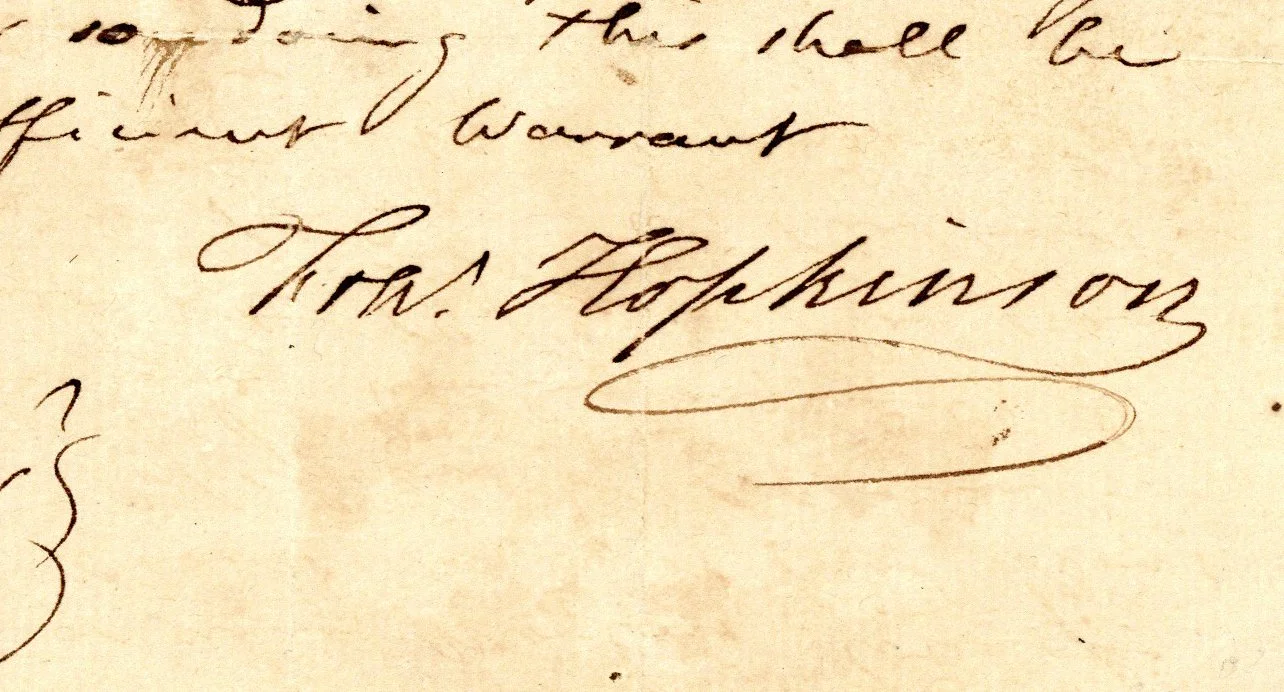 so doing this shall be
fficient Warrant
Fras. Hopkinson